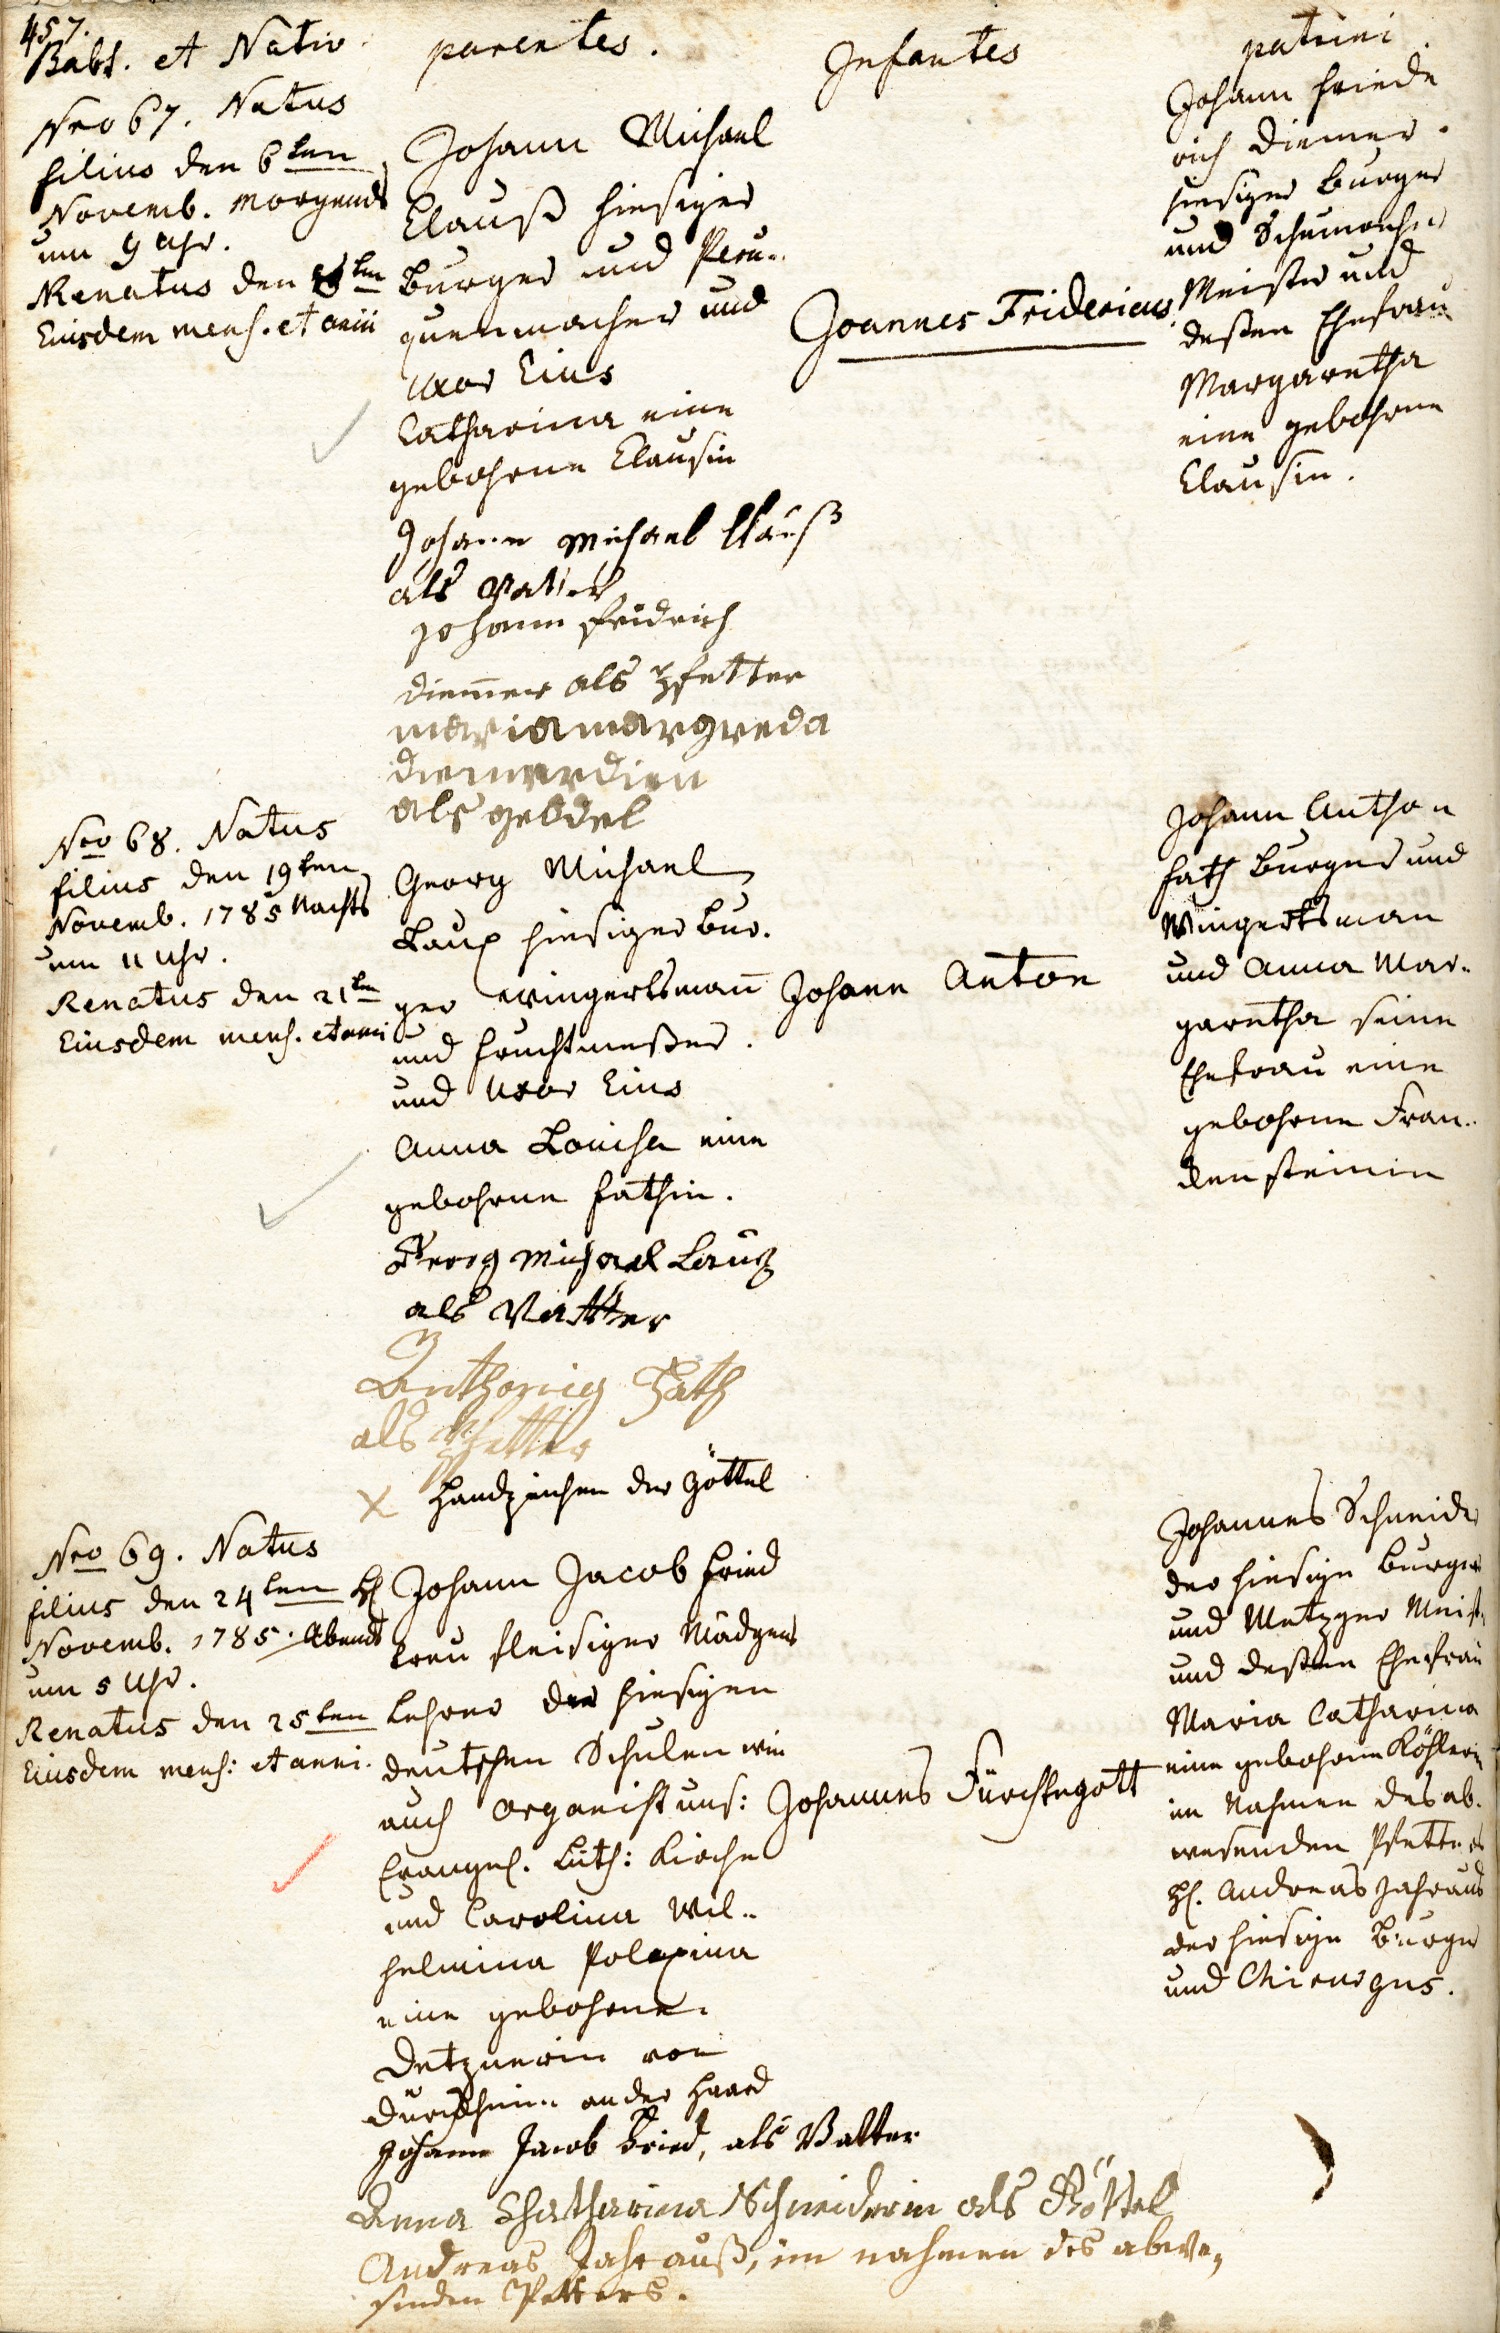 457.
Babt. et Nativ. parentes. Infantes patrini
Nro 67. Natus
filius den 6ten
Novemb. Morgends
um 9 Uhr.
Renatus den
Eiusdem mens. et anni
Johann Michael
Clauß hiesiger
Burger und Peru-
quenmacher und
Uxor Eius
Catharina eine
gebohrne Clausin
Johann Michael Clauß
als Vatter
Johann Fridrich
Diemer als Pfetter
maria margreda
als geddel
Joannes Fridericus
Johann Friede
rich Diemer
hiesiger Burger
und Schumacher
Meister und
deßen Ehefrau
Margaretha
eine gebohrne
Clausin.
Nro 68. Natus
filius den 19ten
Novemb. 1785 Nachts
um 11 Uhr.
Renatus den 21ten
Eiusdem mens. et anni
Georg Michael
Laux hiesiger Bur-
ger Wingertsmann
und Fruchtmeßer.
und Uxor Eius
Anna Louisa eine
gebohrne Fathin.
Georg Michael Laux
als Vatter
Anthonig Fath
als Pfetter
X Handzeichen der Göttel
Johann Anton
Johann Anthon
Fath Burger und
Wingertsman
und Anna Mar-
garetha seine
Ehefrau eine
gebohrne Fran-
densteinin
Nro 69. Natus
filius den 24ten
Novemb. 1785. Abends
um 5 Uhr.
Renatus den 25ten
Eiusdem mens: et anni.
H Johann Jacob Fried
treu fleisiger Mädgens
Lehrer der hiesigen
deutschen Schulen wie
auch Organist uns:
Evangel. Luth: Kirche
und Carolina Wil-
helmina Polexina
eine gebohrne
Detznerin von
Dürckheim an der Haard
Johann Jacob Fried, als Vatter
Anna Chatharina Schneiderin als Göttel
Andreas Jahrauß, im nahmen des abwe-
senden Petters.
Johannes Fürchtegott
Johannes Schneider
der hiesige Burger
und Metzger Meist.
und deßen Ehefrau
Maria Catharina
eine gebohrne Köhlerin
im Nahmen des ab-
wesenden Pfetters
H. Andreas Jahraus
der hiesige Burger
und Chirurgus.